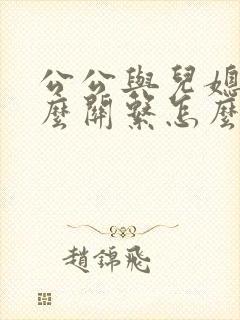 公公與兒媳
麼關繫怎麼
趙錦飛